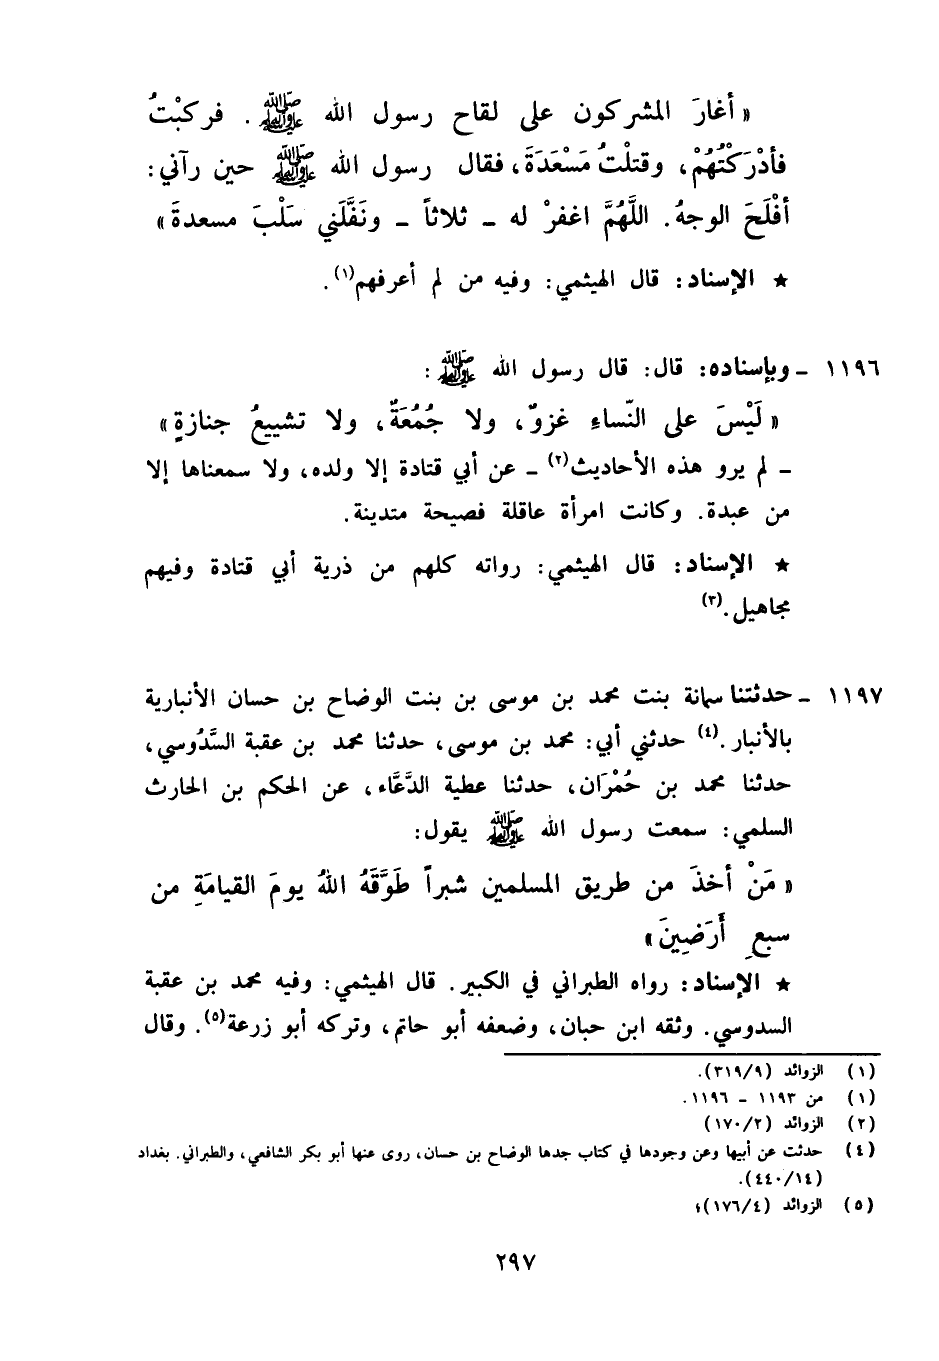 « أغارَ المشركون على لقاح رسول الله ﷺ . فركبْتُ
فأدْرَكْتُهُمْ، وقتلْتُ مَسْعَدَةَ، فقال رسول الله ﷺ حين رآني:
أفْلَحَ الوجهُ. اللَّهُمَّ اغفرْ له ـ ثلاثاً ـ ونَفَّلَني سَلْبَ مسعدةَ »
★ الإسناد: قال الهيثمي: وفيه من لم أعرفهم(١).
١١٩٦ ـ وبإسناده: قال: قال رسول الله ﷺ :
« لَيْسَ على النّساءِ غزوٌ، ولا جُمُعَةٌ، ولا تشييعُ جنازةٍ »
ـ لم يرو هذه الأحاديث(٢) ـ عن أبي قتادة إلا ولده، ولا سمعناها إلا
من عبدة. وكانت امرأة عاقلة فصيحة متدينة.
★ الإسناد: قال الهيثمي: رواته كلهم من ذرية أبي قتادة وفيهم
مجاهيل.(٣)
١١٩٧ ـ حدثتنا سمانة بنت محمد بن موسى بن بنت الوضاح بن حسان الأنبارية
بالأنبار.(٤) حدثني أبي: محمد بن موسى، حدثنا محمد بن عقبة السَّدُوسي،
حدثنا محمد بن حُمْرَان، حدثنا عطية الدَّعَّاء، عن الحكم بن الحارث
السلمي: سمعت رسول الله ﷺ يقول:
« مَنْ أخذَ من طريق المسلمين شبراً طَوَّقَهُ اللهُ يومَ القيامَةِ من
سبعِ أَرَضِينَ »
★ الإسناد: رواه الطبراني في الكبير. قال الهيثمي: وفيه محمد بن عقبة
السدوسي. وثقه ابن حبان، وضعفه أبو حاتم، وتركه أبو زرعة(٥). وقال
(١) الزوائد (٣١٩/٩).
(١) من ١١٩٣ ـ ١١٩٦.
(٢) الزوائد (١٧٠/٢)
(٤) حدثت عن أبيها وعن وجودها في كتاب جدها الوضاح بن حسان، روى عنها أبو بكر الشافعي، والطبراني. بغداد
(٤٤٠/١٤).
(٥) الزوائد (١٧٦/٤)؛
٢٩٧